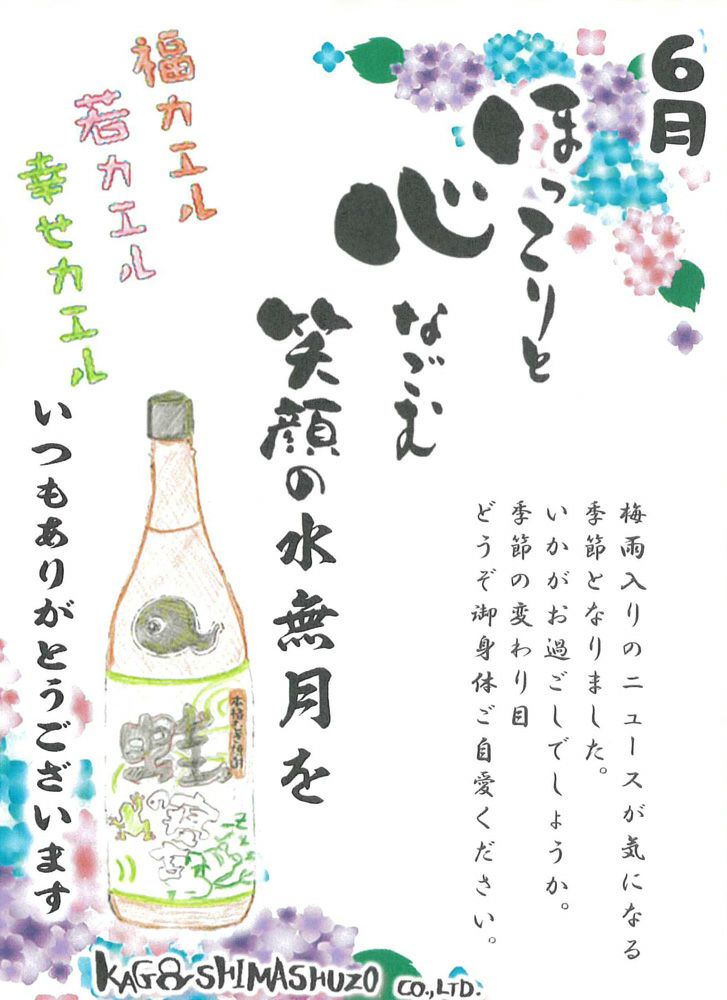 6月
ほっこりと
心
なごむ
笑顔の水無月を
梅雨入りのニュースが気になる
季節となりました。
いかがお過ごしでしょうか。
季節の変わり目
どうぞ御身体ご自愛ください。
福カエル
若カエル
幸せカエル
いつもありがとうございます
本格むぎ焼酎
蛙
KAGOSHIMASHUZO CO.,LTD.